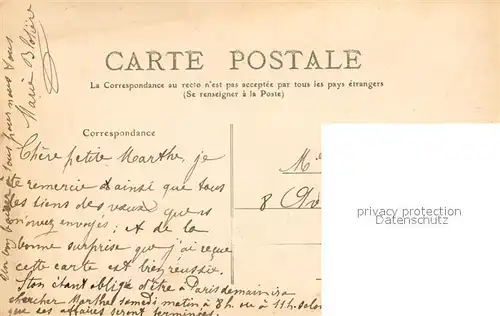 CARTE POSTALE
La Correspondance au recto n'est pas acceptée par tous les pays étrangers
(Se renseigner à la Poste)
Correspondance
Chère petite Marthe, je
te remercie d'ainsi que tous
les tiens des vœux que
m'avez envoyés; et de la
bonne surprise que j'ai reçue
cette carte est bien réussie.
étant obligé d'être à Paris demain
chercher Marthe samedi matin à 8h. ou à 11h. selon
que ses affaires seront terminées.
M
8
privacy protection
Datenschutz
baiser à tous pour nous tous
Marie